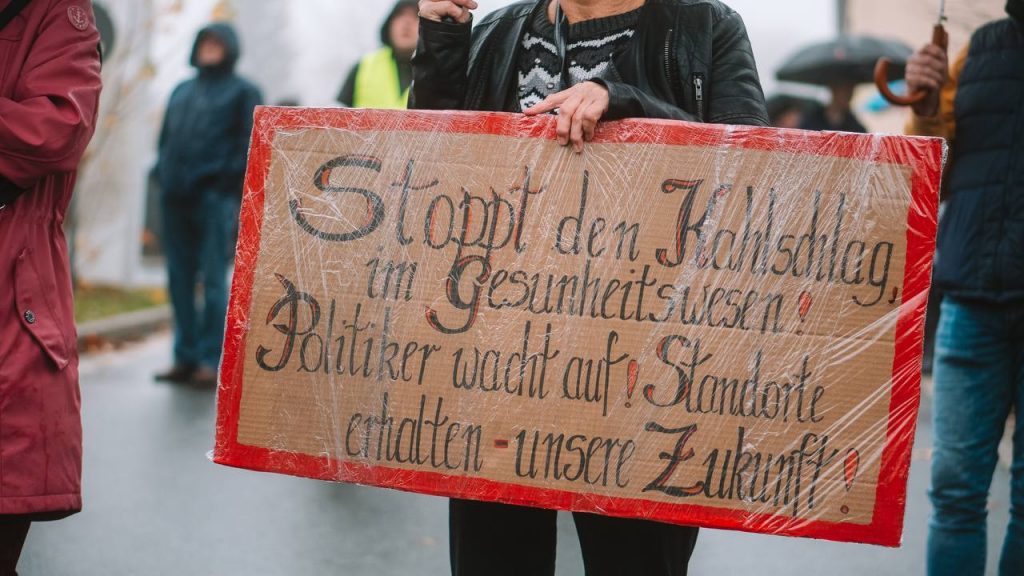 Stoppt den Kahlschlag,
im Gesundheitswesen!
Politiker wacht auf! Standorte
erhalten - unsere Zukunft!